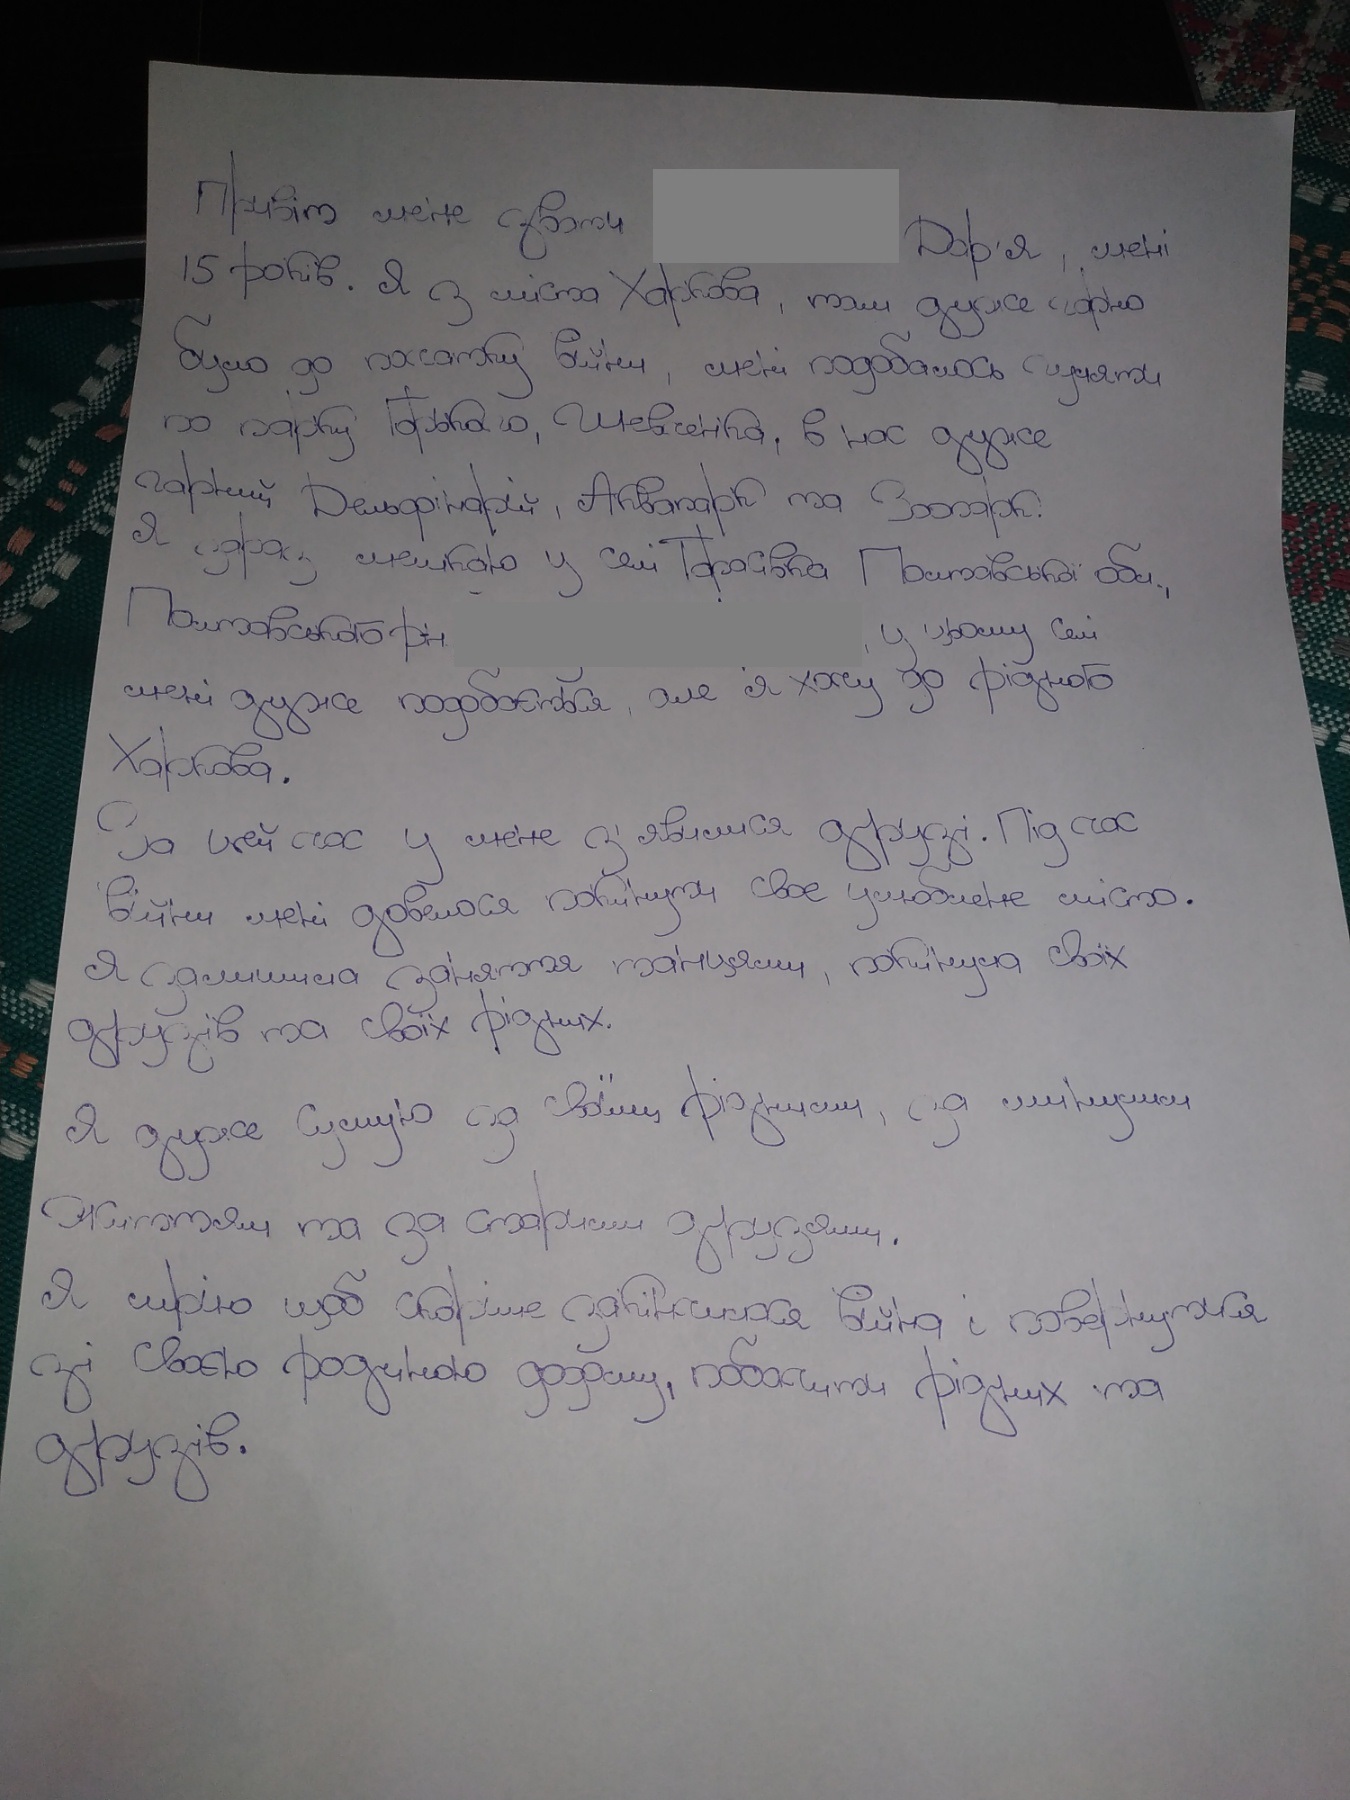 Привіт мене звати Дар'я, мені
15 років. Я з міста Харкова, там дуже гарно
було до початку війни, мені подобалось гуляти
по парку Горького, Шевченка, в нас дуже
гарний Дельфінарій, Аквапарк та Зоопарк.
Я зараз мешкаю у селі Тарасівка Полтавської обл.,
Полтавського рн, у цьому селі
мені дуже подобається, але я хочу до рідного
Харкова.
За цей час у мене з'явилися друзі. Під час
війни мені довелося покинути своє улюблене місто.
Я залишила заняття танцями, покинула своїх
друзів та своїх рідних.
Я дуже сумую за своїми рідними, за минулим
життям та за старими друзями.
Я мрію щоб скоріше закінчилася війна і повернутися
зі своєю родиною додому, побачити рідних та
друзів.